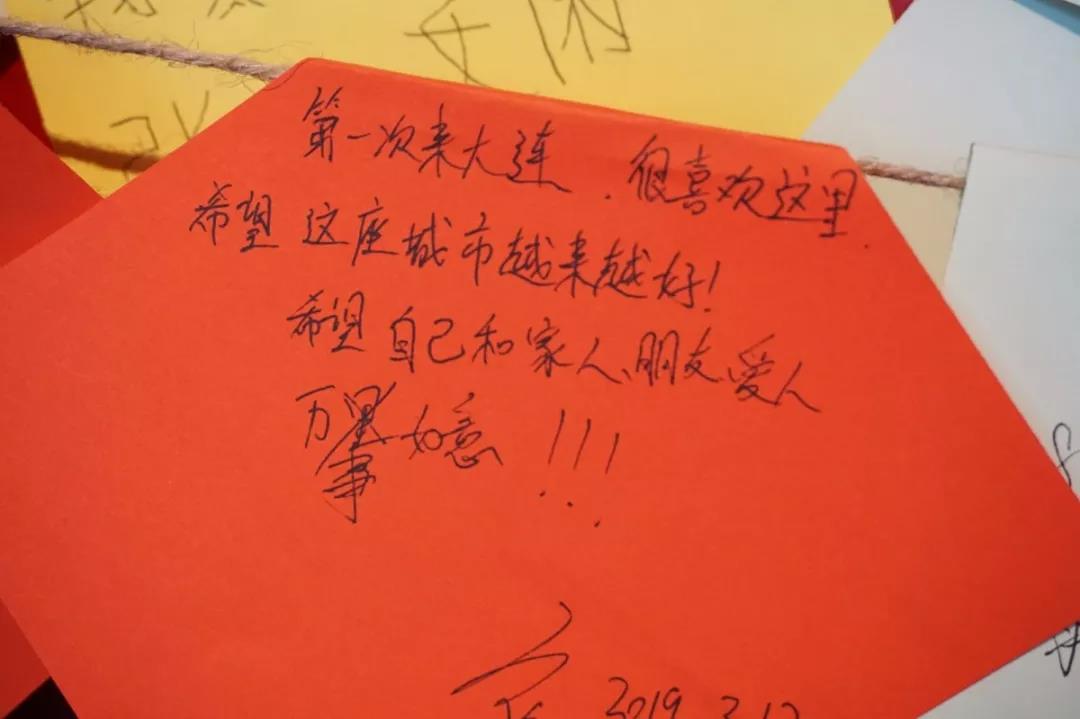 第一次来大连.很喜欢这里.
希望这座城市越来越好!
希望自己和家人、朋友、爱人
万事如意!!!
2019.